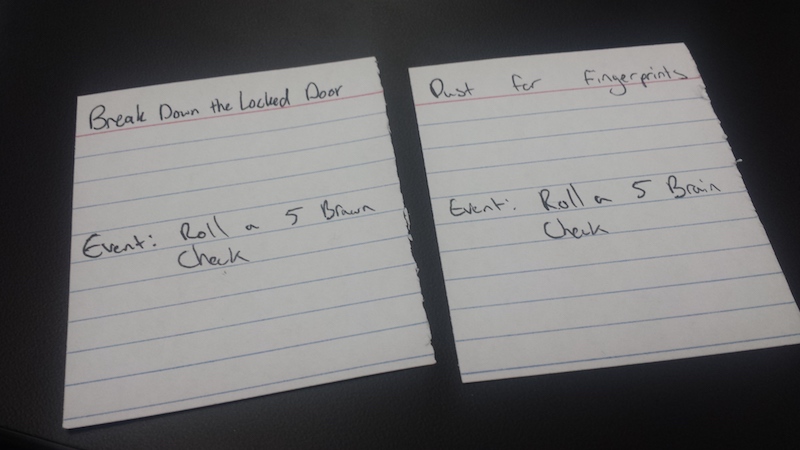 Break Down the Locked Door
Event: Roll a 5 Brawn
Check
Dust for Fingerprints
Event: Roll a 5 Brain
Check